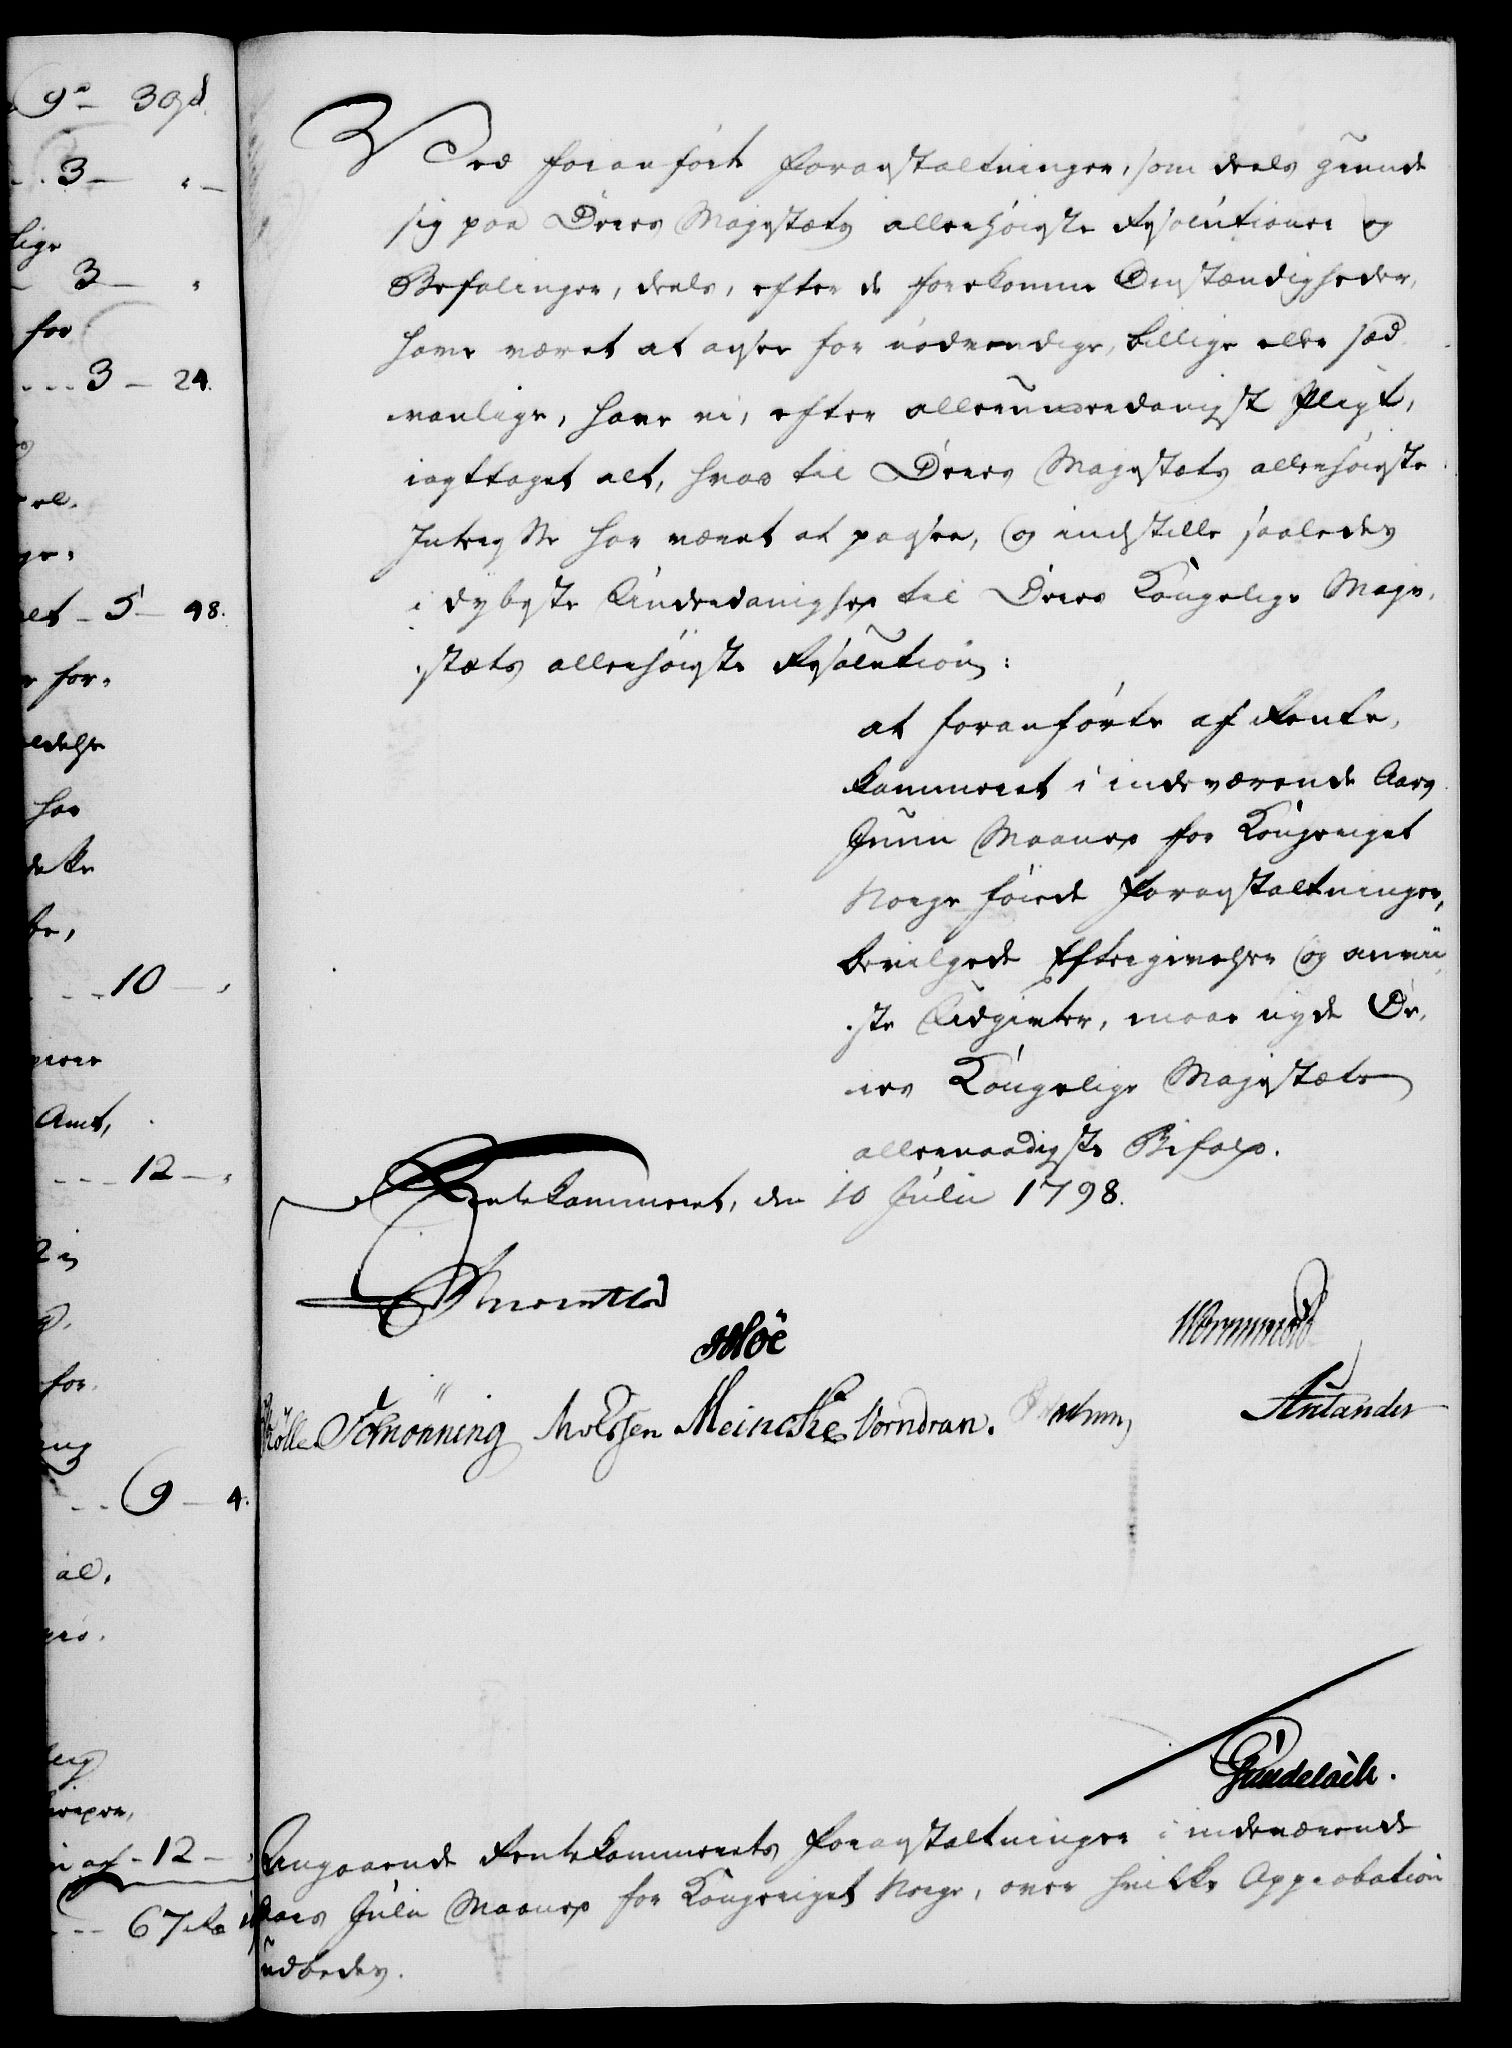 9 - 30 ß.
3 -
lige
3 -
for
3 - 24.
el.
ge.
let - 5 - 48.
for-
eldelse
har
10 -
Amt,
12 -
for
9 - 4.
al.
af - 12 -
67
Ved foranförte Foranstaltninger, som deels grunde
sig paa Deres Majestæts allerhöieste Resolutioner og
Befalinger, deels, efter de forekomne Omstændigheder,
have været at ansee for nödvendige, billige eller sæd-
vanlige, have vi, efter allerunderdanigst Pligt,
iagttaget alt, hvad til Deres Majestæts allerhöieste
Interesse har været at paasee, og indstille saaledes
i dybeste Underdanighed til Deres Kongelige Maje-
stæts allerhöieste Resolution:
at foranförte af Rente-
kammeret i indeværende Aars
Junii Maaned for Kongeriget
Norge föiede Foranstaltninger,
bevilgede Eftergivelser og anvii-
ste Udgivter, maae nyde De-
res Kongelige Majestæts
allernaadigste Bifald.
Rentekammeret, den 10 Julii 1798.
Hoë
Wormskiold
Schönning Meincke Vorndran.
Gundelach.
Angaaende Rentekammerets Foranstaltninger i indeværende
Aars Julii Maaned for Kongeriget Norge, over hvilke Approbation
udbedes.